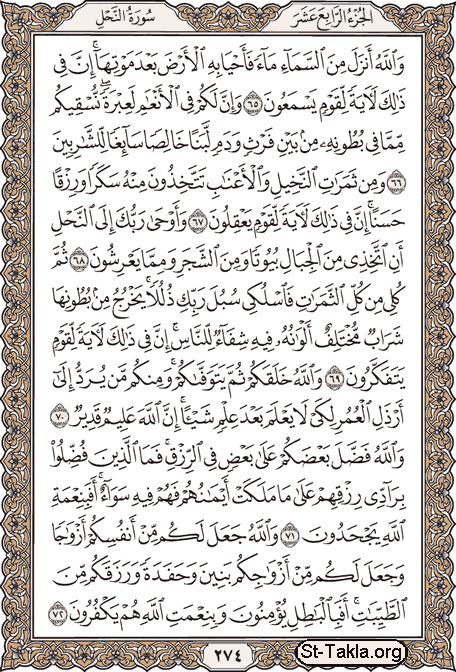 الجزء الرابع عشر
سورة النحل
وَٱللَّهُ أَنزَلَ مِنَ ٱلسَّمَآءِ مَآءً فَأَحْيَا بِهِ ٱلْأَرْضَ بَعْدَ مَوْتِهَآ ۚ إِنَّ فِى
ذَٰلِكَ لَءَايَةً لِّقَوْمٍ يَسْمَعُونَ ٦٥ وَإِنَّ لَكُمْ فِى ٱلْأَنْعَٰمِ لَعِبْرَةً ۖ نُّسْقِيكُم
مِّمَّا فِى بُطُونِهِۦ مِنۢ بَيْنِ فَرْثٍ وَدَمٍ لَّبَنًا خَالِصًا سَآئِغًا لِّلشَّٰرِبِينَ
٦٦ وَمِن ثَمَرَٰتِ ٱلنَّخِيلِ وَٱلْأَعْنَٰبِ تَتَّخِذُونَ مِنْهُ سَكَرًا وَرِزْقًا
حَسَنًا ۗ إِنَّ فِى ذَٰلِكَ لَءَايَةً لِّقَوْمٍ يَعْقِلُونَ ٦٧ وَأَوْحَىٰ رَبُّكَ إِلَى ٱلنَّحْلِ
أَنِ ٱتَّخِذِى مِنَ ٱلْجِبَالِ بُيُوتًا وَمِنَ ٱلشَّجَرِ وَمِمَّا يَعْرِشُونَ ٦٨ ثُمَّ
كُلِى مِن كُلِّ ٱلثَّمَرَٰتِ فَٱسْلُكِى سُبُلَ رَبِّكِ ذُلُلًا ۚ يَخْرُجُ مِنۢ بُطُونِهَا
شَرَابٌ مُّخْتَلِفٌ أَلْوَٰنُهُۥ فِيهِ شِفَآءٌ لِّلنَّاسِ ۗ إِنَّ فِى ذَٰلِكَ لَءَايَةً لِّقَوْمٍ
يَتَفَكَّرُونَ ٦٩ وَٱللَّهُ خَلَقَكُمْ ثُمَّ يَتَوَفَّىٰكُمْ ۚ وَمِنكُم مَّن يُرَدُّ إِلَىٰٓ
أَرْذَلِ ٱلْعُمُرِ لِكَىْ لَا يَعْلَمَ بَعْدَ عِلْمٍ شَيْـًٔا ۚ إِنَّ ٱللَّهَ عَلِيمٌ قَدِيرٌ ٧٠
وَٱللَّهُ فَضَّلَ بَعْضَكُمْ عَلَىٰ بَعْضٍ فِى ٱلرِّزْقِ ۚ فَمَا ٱلَّذِينَ فُضِّلُوا۟
بِرَآدِّى رِزْقِهِمْ عَلَىٰ مَا مَلَكَتْ أَيْمَٰنُهُمْ فَهُمْ فِيهِ سَوَآءٌ ۚ أَفَبِنِعْمَةِ
ٱللَّهِ يَجْحَدُونَ ٧١ وَٱللَّهُ جَعَلَ لَكُم مِّنْ أَنفُسِكُمْ أَزْوَٰجًا
وَجَعَلَ لَكُم مِّنْ أَزْوَٰجِكُم بَنِينَ وَحَفَدَةً وَرَزَقَكُم مِّنَ
ٱلطَّيِّبَٰتِ ۚ أَفَبِٱلْبَٰطِلِ يُؤْمِنُونَ وَبِنِعْمَتِ ٱللَّهِ هُمْ يَكْفُرُونَ ٧٢
٢٧٤
St-Takla.org